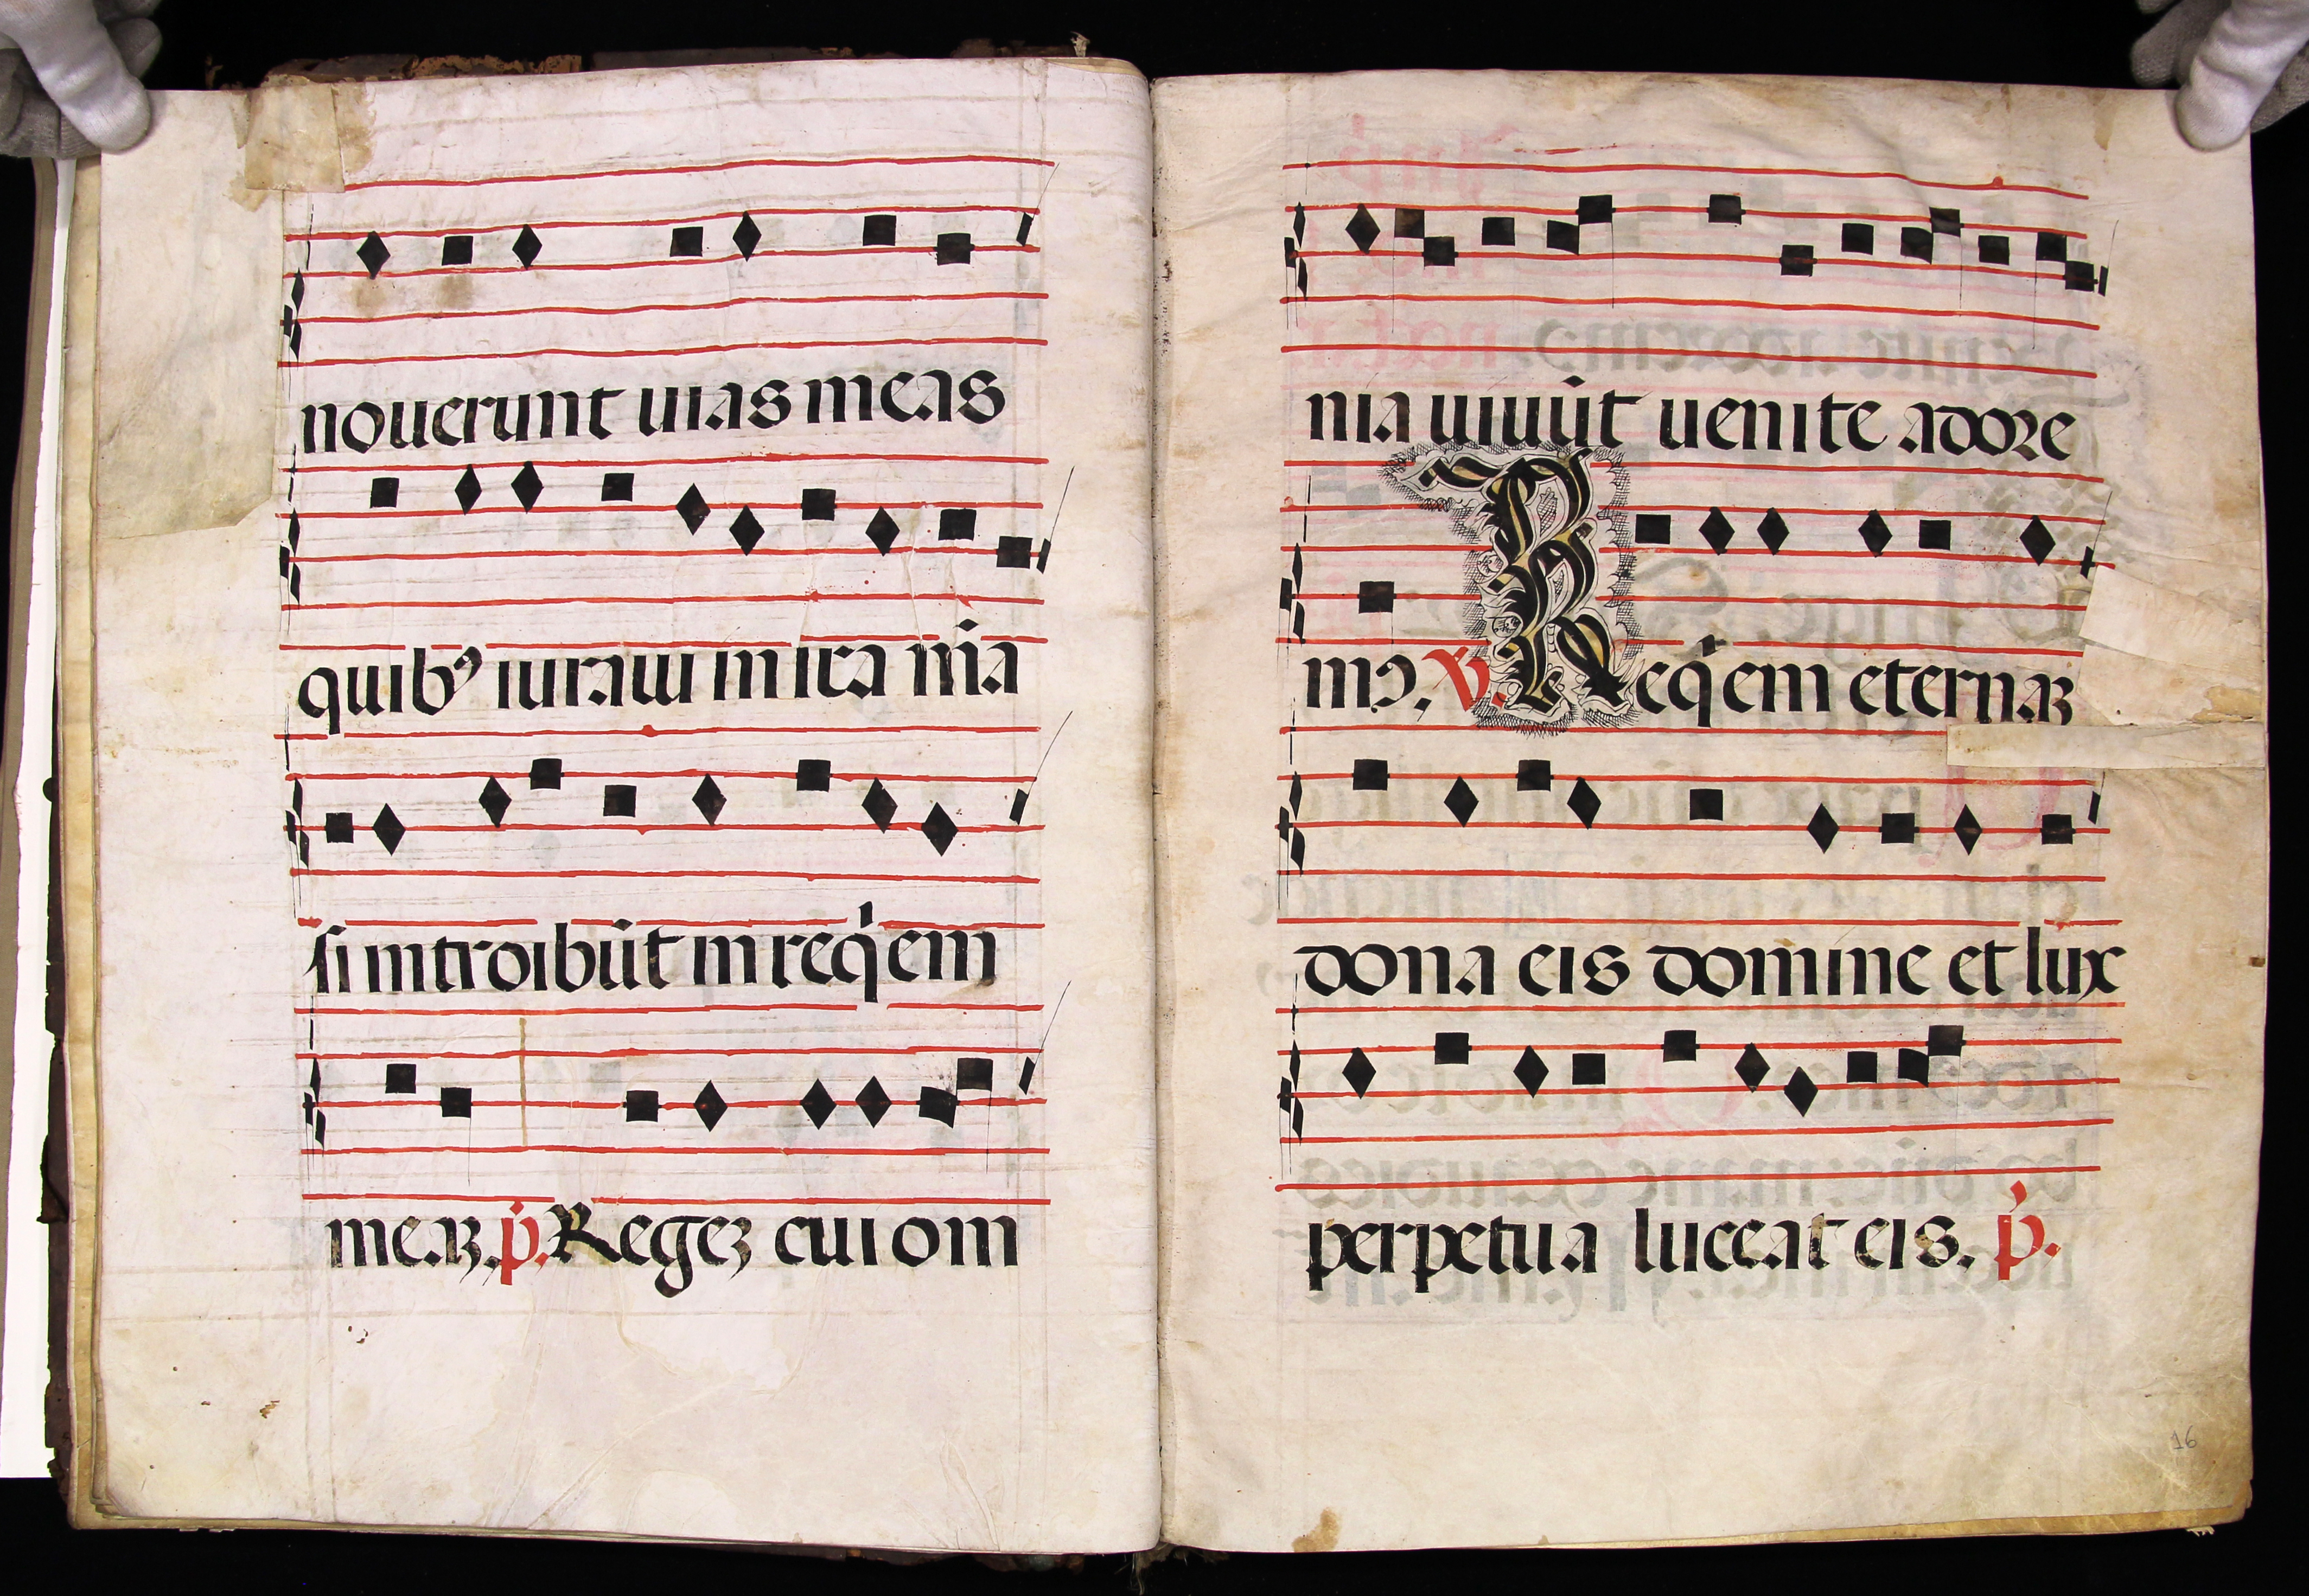 nouerunt uias meas
quibꝰ iuraui in ira m̃a
si introibũt in req̇em
meaȝ. p̃. Regeȝ cui om
nia uiuũt uenite adore
mꝰ. V̷. Req̇em eternaȝ
dona eis domine et lux
perpetua luceat eis. p̃.
16